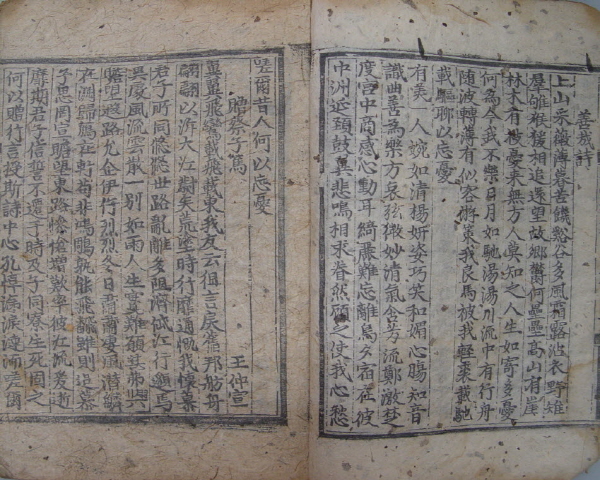 善哉詩
上山采薇薄暮苦饑谿谷多風霜露沾衣野雉
羣雊猴猿相追還望故鄉鬱何壘壘高山有崖
林木有枝憂來無方人莫知之人生如寄多憂
何為今我不樂日月如馳湯湯川流中有行舟
隨波轉薄有似客遊策我良馬被我輕裘載馳
載驅聊以忘憂
有美一人婉如清楊妍姿巧笑和媚心腸知音
識曲善為樂方哀弦微妙清氣含芳流鄭激楚
度宮中商感心動耳綺麗難忘離鳥夕宿在彼
中洲延頸鼓翼悲鳴相求眷然顧之使我心愁
嗟爾昔人何以忘憂
贈蔡子篤 王仲宣
翼翼飛鸞載飛載東我友云徂言戾舊邦舫舟
翩翩以泝大江蔚矣荒塗時行靡通慨我懷慕
君子所同悠悠世路亂離多阻濟岱江行邈焉
異處風流雲散一別如雨人生實難願其弗與
瞻望遐路允企伊佇烈烈冬日肅肅淒風潛鱗
在淵歸鴈載軒苟非鴻鵰孰能飛飜雖則追慕
予思罔宣瞻望東路慘愴增歎率彼江流爰逝
靡期君子信誓不遷于時及子同寮生死固之
何以贈行言授斯詩中心孔悼涕淚漣洏嗟爾